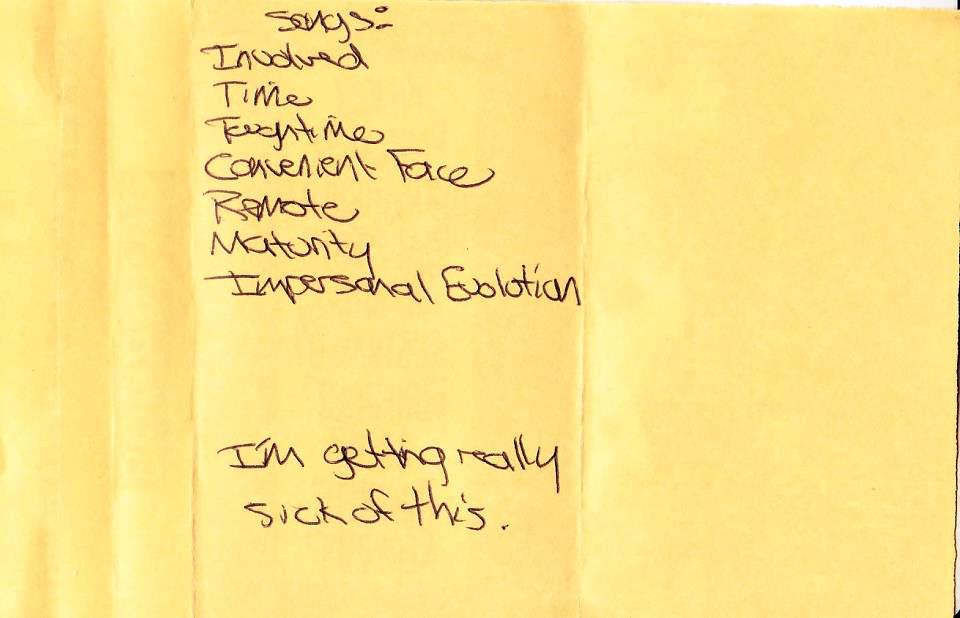 Songs:
Involved
Time
Toughtime
Convenient Face
Remote
Maturity
Impersonal Evolotion
I'm getting really
sick of this.